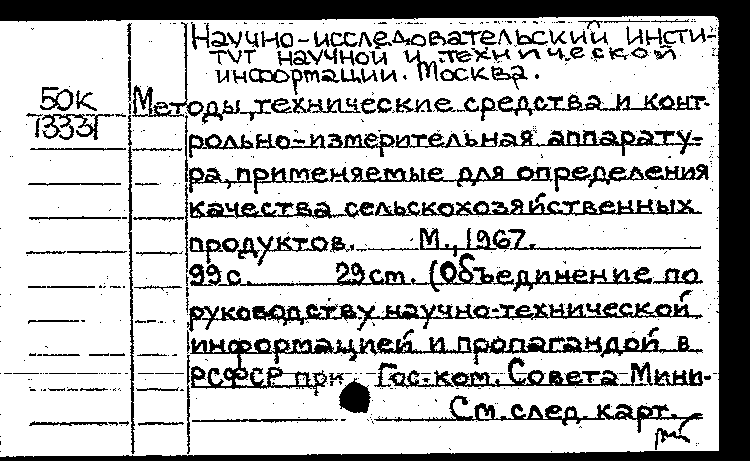 Научно-исследовательский инсти-
тут научной и технической
информации. Москва.
50К
13331
Методы, технические средства и конт-
рольно-измерительная аппарату-
ра, применяемые для определения
качества сельскохозяйственных
продуктов. М., 1967.
99с. 29см. (Объединение по
руководству научно-технической
информацией и пропагандой в
РСФСР при Гос. ком. Совета Мини-
См. след. карт.